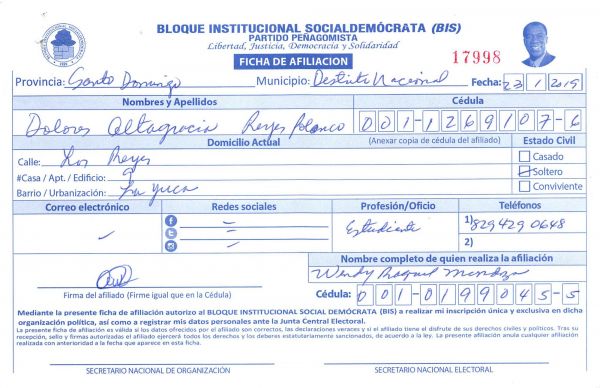 BLOQUE INSTITUCIONAL SOCIALDEMÓCRATA (BIS)
PARTIDO PEÑAGOMISTA
Libertad, Justicia, Democracia y Solidaridad
FICHA DE AFILIACION
17998
Provincia: Santo Domingo Municipio: Distrito Nacional Fecha: 23/1/2019
Nombres y Apellidos Cédula
Dolores Altagracia Reyes Polanco 001-1269107-6
Domicilio Actual (Anexar copia de cédula del afiliado) Estado Civil
Calle: Los Reyes Casado
#Casa / Apt. / Edificio: 9 Soltero
Barrio / Urbanización: La Yuca Conviviente
Correo electrónico Redes sociales Profesión/Oficio Teléfonos
Estudiante 1) 829 429 0648
2)
Nombre completo de quien realiza la afiliación
Wendy Raquel Mendoza
Firma del afiliado (Firme igual que en la Cédula) Cédula: 001-0199045-5
Mediante la presente ficha de afiliación autorizo al BLOQUE INSTITUCIONAL SOCIAL DEMÓCRATA (BIS) a realizar mi inscripción única y exclusiva en dicha
organización política, así como a registrar mis datos personales ante la Junta Central Electoral.
La presente ficha de afiliación es válida si los datos ofrecidos por el afiliado son correctos, las declaraciones veraces y si el afiliado tiene el disfrute de sus derechos civiles y políticos. Tras su
recepción, sello y firmas autorizadas el afiliado ejercerá todos los derechos y los deberes estatutariamente sancionados, de acuerdo a la ley. La presente afiliación anula cualquier afiliación
realizada con anterioridad a la fecha que aparece en esta ficha.
SECRETARIO NACIONAL DE ORGANIZACIÓN SECRETARIO NACIONAL ELECTORAL